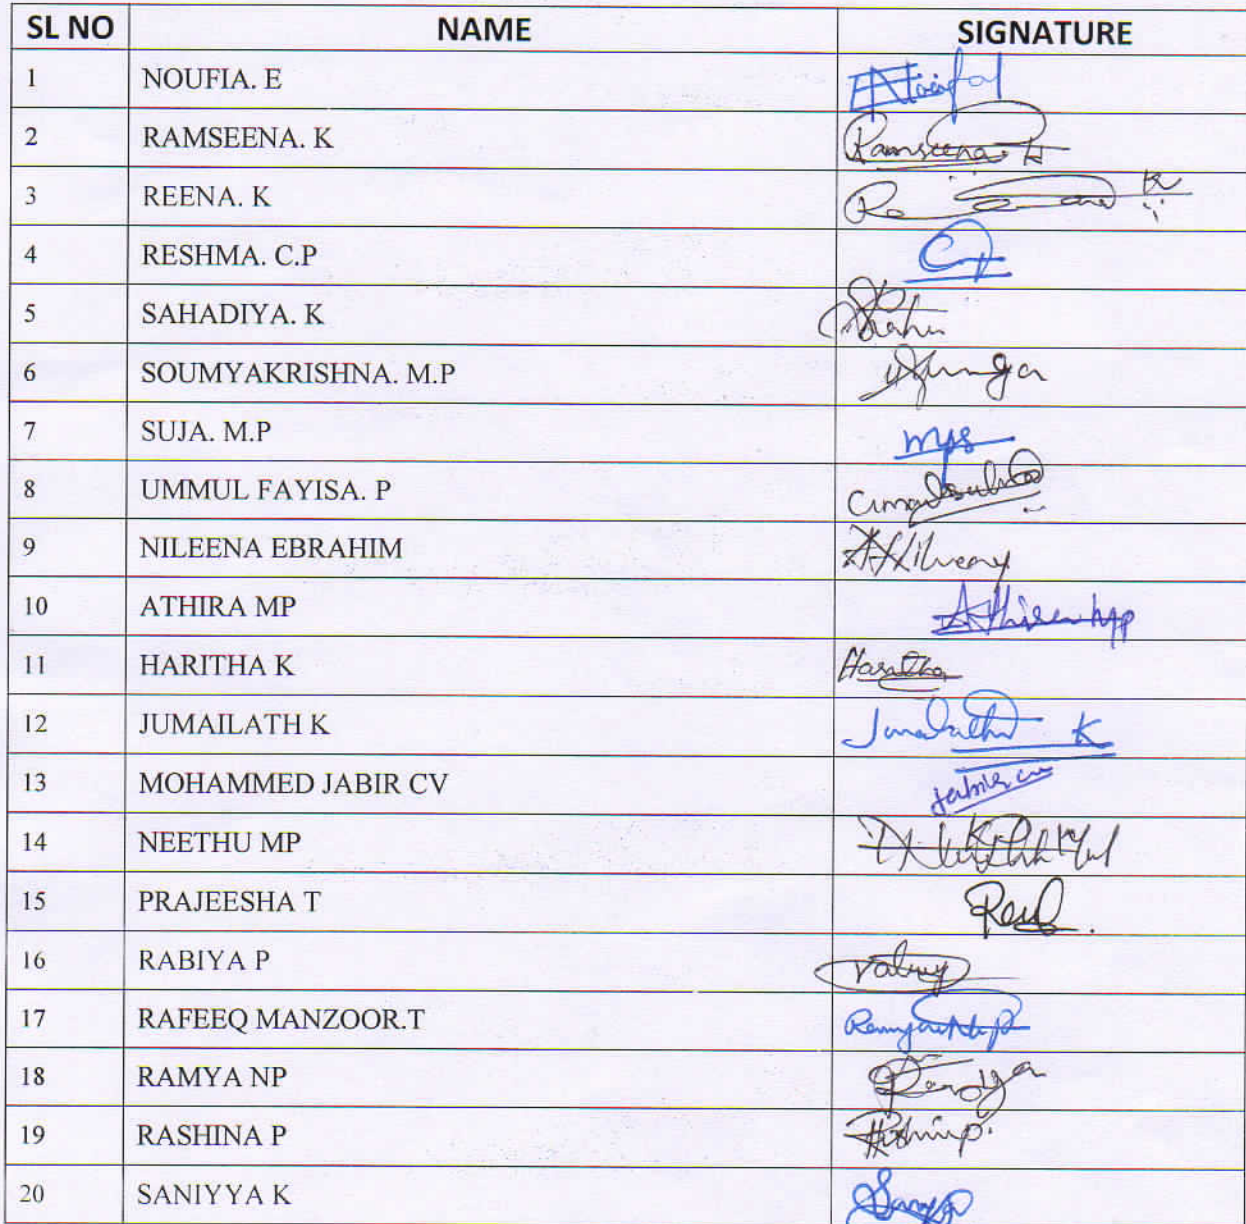 SL NO NAME SIGNATURE
1 NOUFIA. E
2 RAMSEENA. K Ramseena. K
3 REENA. K
4 RESHMA. C.P
5 SAHADIYA. K
6 SOUMYAKRISHNA. M.P
7 SUJA. M.P mps
8 UMMUL FAYISA. P
9 NILEENA EBRAHIM
10 ATHIRA MP Athira Mp
11 HARITHA K Haritha
12 JUMAILATH K Jumailath K
13 MOHAMMED JABIR CV Jabir cv
14 NEETHU MP
15 PRAJEESHA T
16 RABIYA P
17 RAFEEQ MANZOOR.T
18 RAMYA NP
19 RASHINA P
20 SANIYYA K